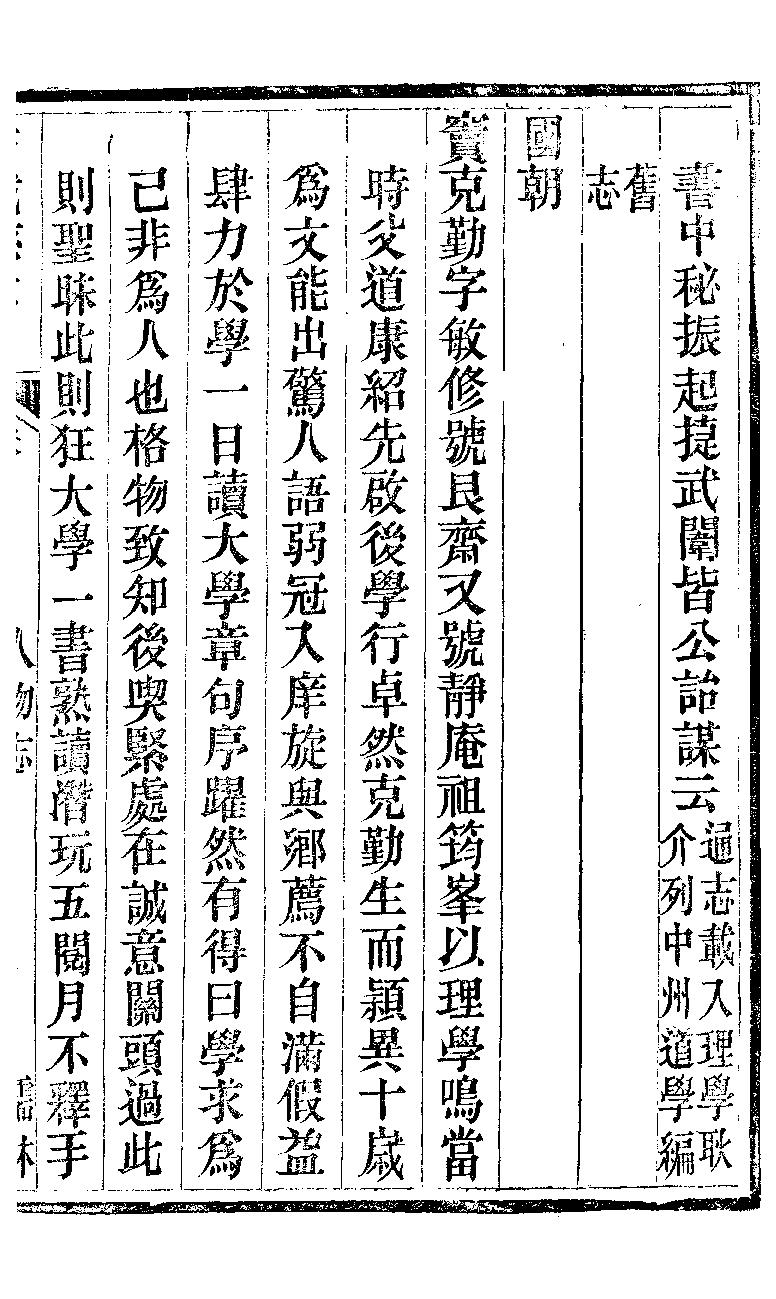 書中秘振起捷武闈皆公詒謀云通志載入理學耿
介列中州道學編
舊
志
國朝
竇克勤字敏修號艮齋又號靜庵祖筠峯以理學鳴當
時父道康紹先啟後學行卓然克勤生而穎異十歲
爲文能出驚人語弱冠入庠旋與鄕薦不自滿假益
肆力於學一日讀大學章句序躍然有得曰學求爲
己非爲人也格物致知後喫緊處在誠意關頭過此
則聖昧此則狂大學一書熟讀潛玩五閱月不釋手
人物志